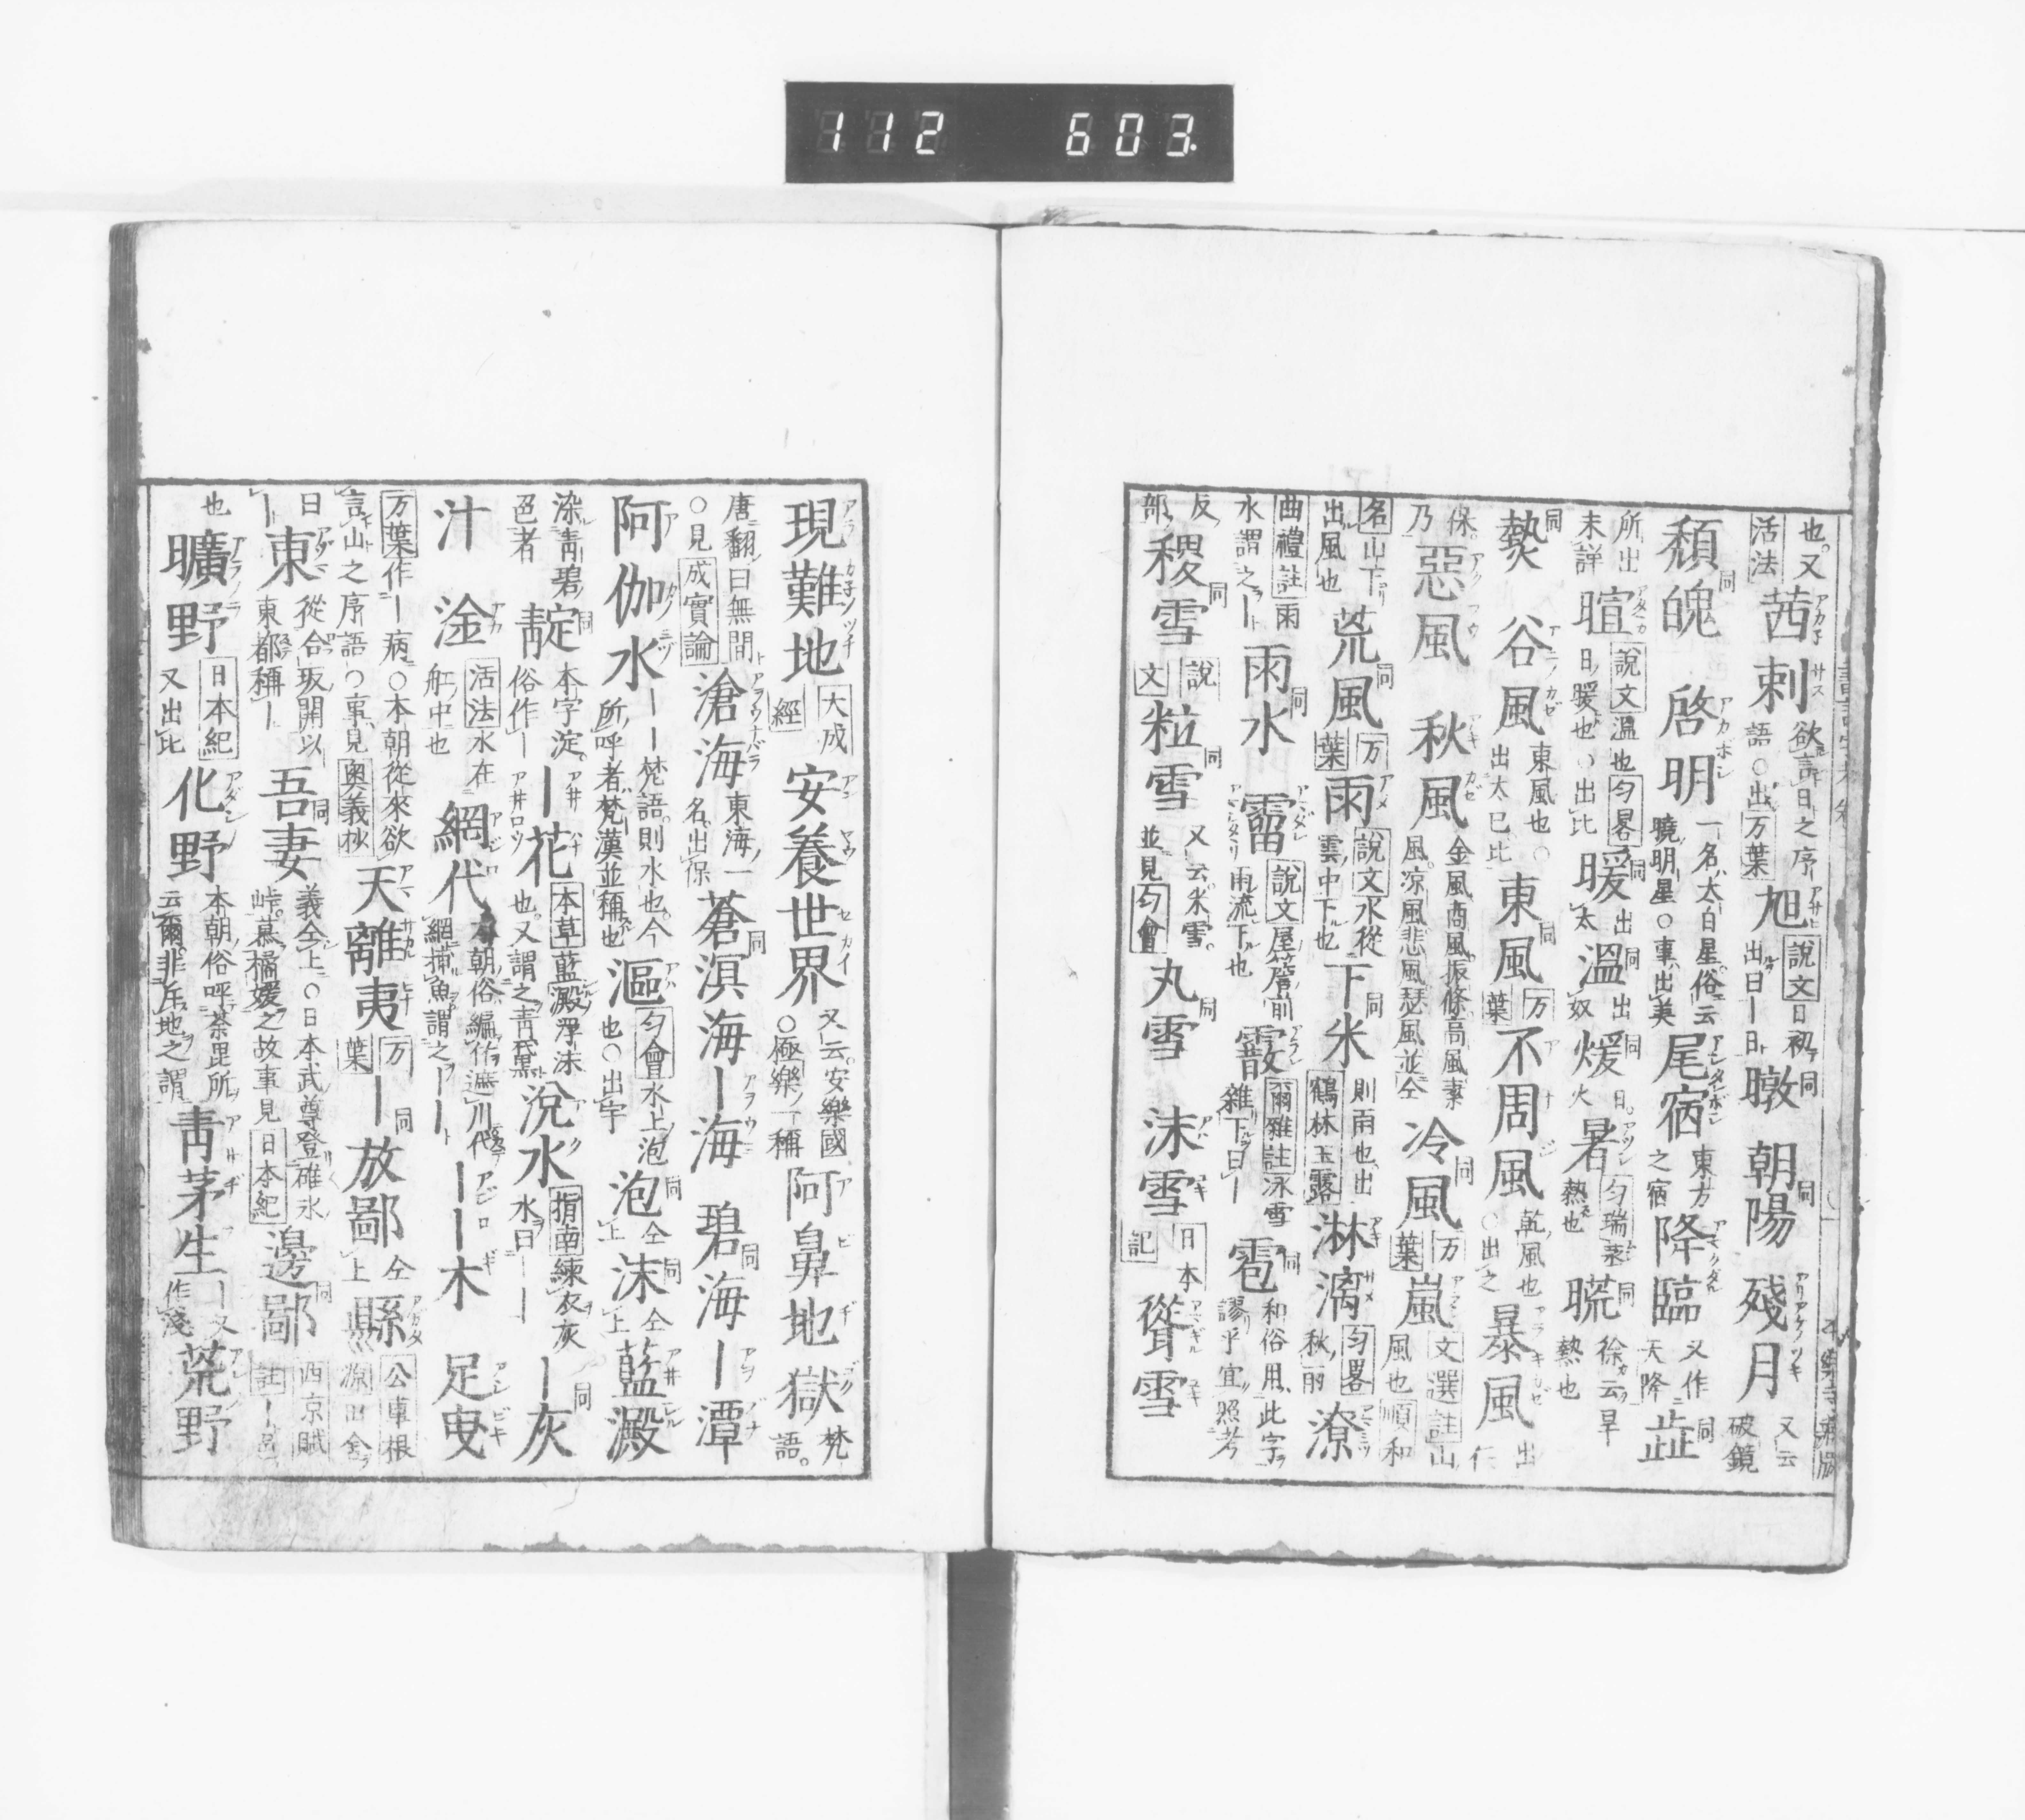 112 603.
也。又茜刺欲言日之序語○出万葉旭說文日初出曰ー日暾朝陽殘月又云破鏡
活法
頽魄啓明一名太白星俗云曉明星○事出美尾宿東方之宿降臨又作天降
所出未詳暄說文溫也匀畧日暖也○出比暖出太溫出奴煖日火暑匀瑞熱也熱也
谷風東風也○出太巳比東風万葉不周風乾風也○出之暴風出仁
保乃惡風秋風金風商風振條高風素風凉風悲風瑟風並仝冷風万葉嵐文選註山風也順和
名山下出風也荒風万葉雨說文水從雲中下也下米則雨也出鶴林玉露淋漓匀畧秋雨潦
曲禮註雨水謂之ー雨水霤說文屋簷前雨流下也霰爾雅註泳雪雜下曰ー雹和俗用此字謬乎宜照考
反部稷雪說文粒雪又云米雪。並見匀會丸雪沫雪日本記聳雪
現難地大成經安養世界又云安樂國○極樂一稱阿鼻地獄梵語。
唐翻曰無間○見成實論滄海東海一名出保蒼溟海ー海碧海ー潭
阿伽水ーー梵語則水也。今所呼者梵漢並稱也漚匀會水上泡也○出宇泡仝上沫仝上藍澱
染靑碧色者靛本字淀。俗作ーー花本草藍澱浮沫也。又謂之靑黛涗水指南練衣灰水曰ーーー灰
汁淦活法水在舡中也網代本朝俗編竹遮川代網捕魚謂之ーーーー木足曳
万葉作ー病○本朝從來欲言山之序語○事見奧義秋天離夷万葉ー放鄙仝上縣公車根源出舍
日ー東從合坂開以東都稱ー吾妻義仝上○日本武尊登碓氷峠。慕橘媛之故事見日本紀邊鄙西京賦註ー邑
也曠野日本紀又出比化野本朝俗呼荼毘所云爾。非斥地之謂靑茅生ー又作淺荒野